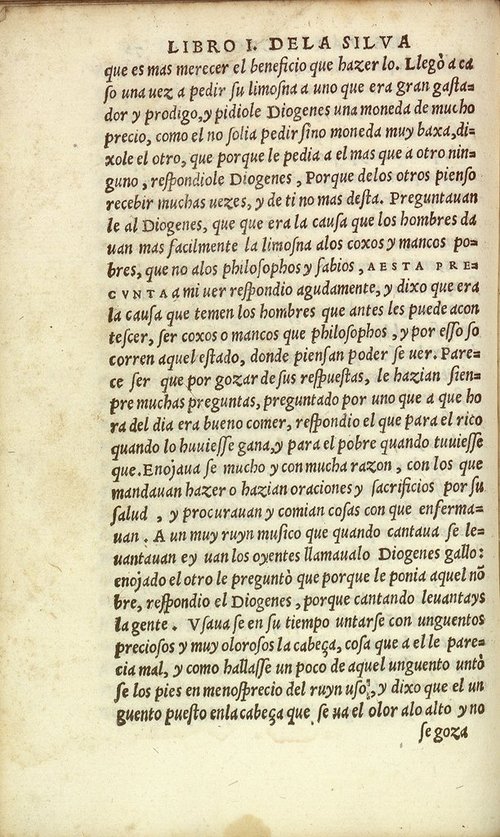 LIBRO I. DELA SILVA
que es mas merecer el beneficio que hazer lo. Llegò a ca
so una uez a pedir su limosna a uno que era gran gasta=
dor y prodigo, y pidiole Diogenes una moneda de mucho
precio, como el no solia pedir sino moneda muy baxa, di=
xole el otro, que porque le pedia a el mas que a otro nin=
guno, respondiole Diogenes, Porque delos otros pienso
recebir muchas uezes, y de ti no mas desta. Preguntauan
le al Diogenes, que que era la causa que los hombres da
uan mas facilmente la limosna alos coxos y mancos po=
bres, que no alos philosophos y sabios, AESTA PRE=
CVNTA a mi uer respondio agudamente, y dixo que era
la causa que temen los hombres que antes les puede acon
tescer, ser coxos o mancos que philosophos, y por esso so
corren aquel estado, donde piensan poder se uer. Pare=
ce ser que por gozar de sus respuestas, le hazian sien=
pre muchas preguntas, preguntado por uno que a que ho
ra del dia era bueno comer, respondio el que para el rico
quando lo huuiesse gana, y para el pobre quando tuuiesse
que. Enojaua se mucho y con mucha razon, con los que
mandauan hazer o hazian oraciones y sacrificios por su
salud, y procurauan y comian cosas con que enferma=
uan. A un muy ruyn musico que quando cantaua se le=
uantauan ey uan los oyentes llamaualo Diogenes gallo:
enojado el otro le preguntò que porque le ponia aquel nõ
bre, respondio el Diogenes, porque cantando leuantays
la gente. Vsaua se en su tiempo untarse con unguentos
preciosos y muy olorosos la cabeça, cosa que a el le pare=
cia mal, y como hallasse un poco de aquel unguento untò
se los pies en menosprecio del ruyn uso, y dixo que el un
guento puesto enla cabeça que se ua el olor alo alto y no
se goza